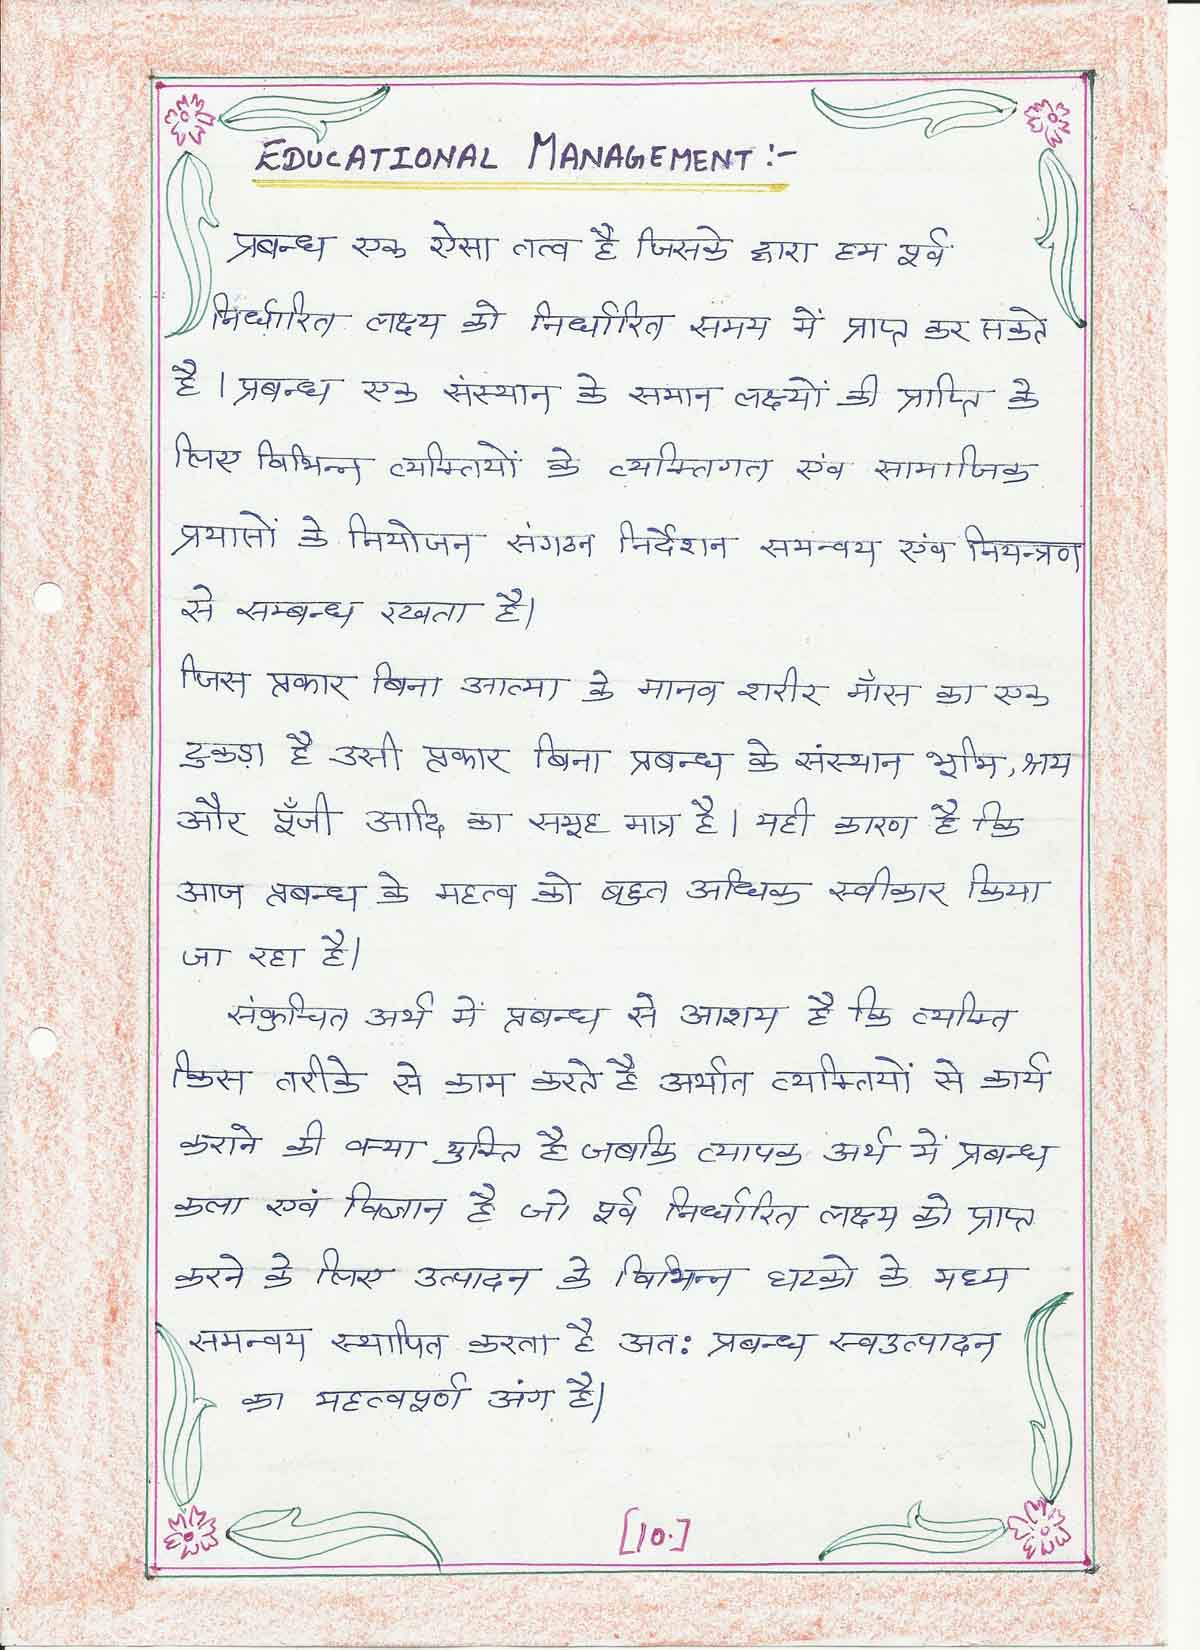 EDUCATIONAL MANAGEMENT :-
प्रबन्ध एक ऐसा तत्व है जिसके द्वारा हम पूर्व
निर्धारित लक्ष्य को निर्धारित समय में प्राप्त कर सकते
है । प्रबन्ध एक संस्थान के समान लक्ष्यों की प्राप्ति के
लिए विभिन्न व्यक्तियों के व्यक्तिगत एंव सामाजिक
प्रयासों के नियोजन संगठन निर्देशन समन्वय एंव नियन्त्रण
से सम्बन्ध रखता है।
जिस प्रकार बिना आत्मा के मानव शरीर माँस का एक
टुकड़ा है उसी प्रकार बिना प्रबन्ध के संस्थान भूमि, श्रम
और पूँजी आदि का समूह मात्र है। यही कारण है कि
आज प्रबन्ध के महत्व को बहुत अधिक स्वीकार किया
जा रहा है।
संकुचित अर्थ में प्रबन्ध से आशय है कि व्यक्ति
किस तरीके से काम करते है अर्थात व्यक्तियों से कार्य
कराने की क्या युक्ति है जबकि व्यापक अर्थ में प्रबन्ध
कला एवं विज्ञान है जो पूर्व निर्धारित लक्ष्य को प्राप्त
करने के लिए उत्पादन के विभिन्न घटको के मध्य
समन्वय स्थापित करता है अत: प्रबन्ध स्वउत्पादन
का महत्वपूर्ण अंग है।
[10.]